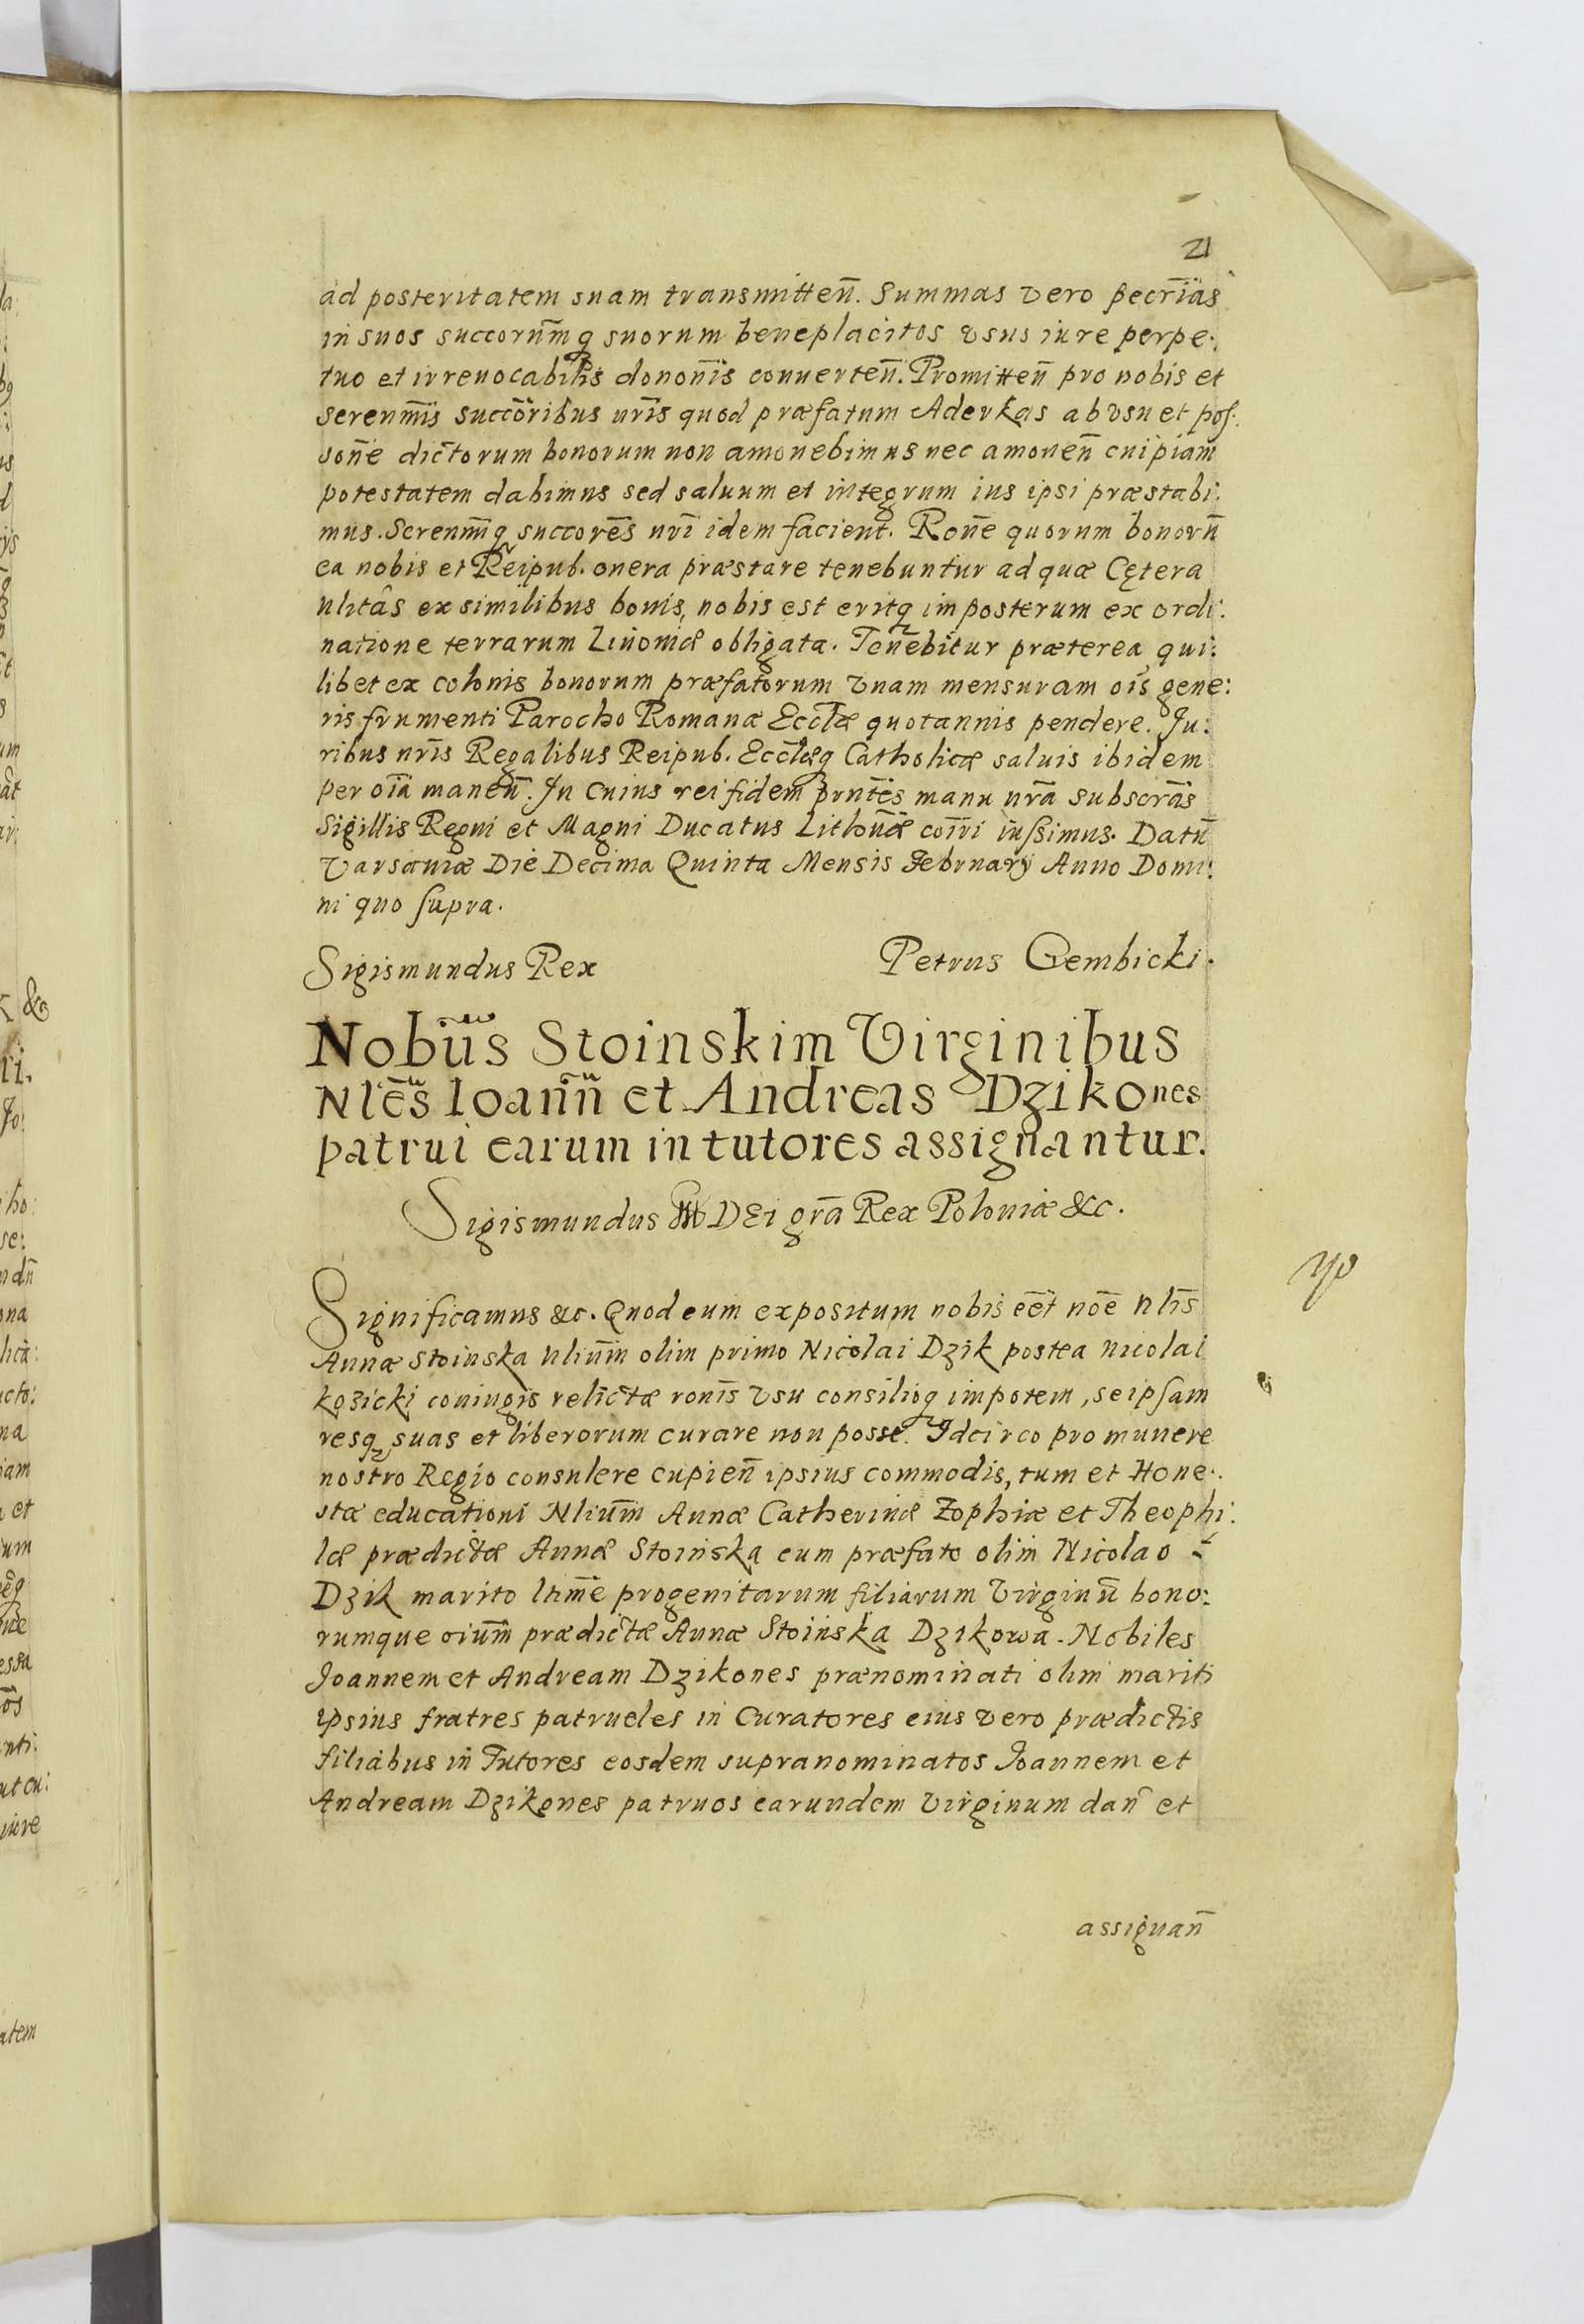 21
ad posteritatem suam transmitten̄. Summas vero pecr̄ias
in suos succorum̄q suorum beneplacitos vsus iure perpe:
tuo et irreuocabilis donon̄is conuerten̄. Promitten̄ pro nobis et
serenm̄is succōribus nr̄is quod præfatum Aderkas ab vsu et pos:
sōne dictorum bonorum non amouebimus nec amouen̄ cuipiam
potestatem dabimus sed saluum et integrum ius ipsi præstabi:
mus. Serenm̄iq succorēs nr̄i idem facient. Ron̄e quorum bonorū
ea nobis et Reipub. onera præstare tenebuntur ad quæ Cętera
nlitās ex similibus bonis, nobis est eritq imposterum ex ordi:
natione terrarum Liuoniæ obligata. Tenebitur præterea qui:
libet ex colonis bonorum præfatorum vnam mensuram oīs gene:
ris frumenti Parocho Romanæ Eccl̄æ quotannis pendere. Iu:
ribus nr̄is Regalibus Reipub. Eccl̄æq Catholicæ saluis ibidem
per oīa manen̄. In Cuius rei fidem prn̄tes manu nr̄a subscrās
Sigillis Regni et Magni Ducatus Lithōuæ coīri iussimus. Datū
Varsauiæ Die Decima Quinta Mensis Februarÿ Anno Domi:
ni quo supra.
Sigismundus Rex Petrus Gembicki.
Nobūs Stoinskim Virginibus
Nlēs Ioan̄n et Andreas Dzikones
patrui earum in tutores assignantur.
Sigismundus DEi grā Rex Poloniæ &c.
Significamus &c. Quod cum expositum nobis eēt noē nlīs
Annæ Stoinska nlium̄ olim primo Nicolai Dzik postea Nicolai
kozicki coniugis relictæ ronīs vsu consilioq impotem, seipsam
resq suas et liberorum curare non posse. Idcirco pro munere
nostro Regio consulere cupien̄ ipsius commodis, tum et Hone:
stæ educationi Nlium̄ Annæ Catherinæ Zophiæ et Theophi:
læ prædictæ Annæ Stoinska cum præfato olim Nicolao
Dzik marito ltim̄e progenitarum filiarum Virginū bono:
rumque oium̄ prædictæ Annæ Stoinska Dzikowa. Nobiles
Joannem et Andream Dzikones prænominati olim mariti
ipsius fratres patrueles in Curatores eius vero prædictis
filiabus in Tutores eosdem supranominatos Joannem et
Andream Dzikones patruos earundem Virginum dan̄ et
assignan̄